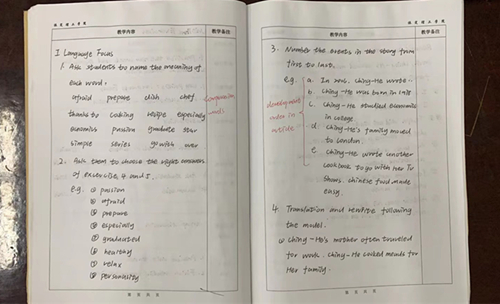 教学内容 教学备注
I Language Focus
1. Ask students to name the meaning of
each word.
afraid prepare dish chef
thanks to cooking recipe especially
economics passion graduate star
simple series go with over
2. Ask them to choose the right answers
of exercise 4 and 5.
e.g. ① passion
② afraid
③ prepare
④ especially
⑤ graduated
⑥ healthy
⑦ relax
⑧ personality
教学内容 教学备注
3. Number the events in the story from
first to last.
e.g. a. In 2005, Ching-He wrote..
b Ching-He was born in 1978
c. Ching-He studied economics
in college.
d Ching-He's family moved
to London.
e. Ching-He wrote another
cookbook to go with her TV
shows. Chinese food made
easy.
4 Translation and rewrite following
the model.
① Ching-He's mother often traveled
for work. Ching-He cooked meals for
Her family.